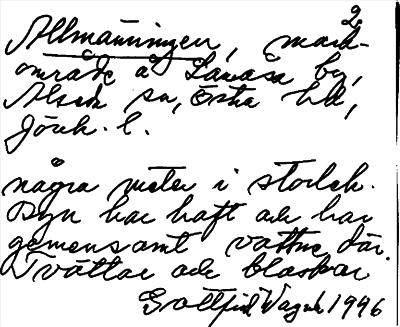 2.
Allmänningen, mark-
område å Lanåsa by,
Alseda sn, Östra hd,
Jönk. l.
några meter i storlek.
Byn har haft och har
gemensamt vatten där.
Tvättar och blaskar
Gottfrid Wagnh 1946